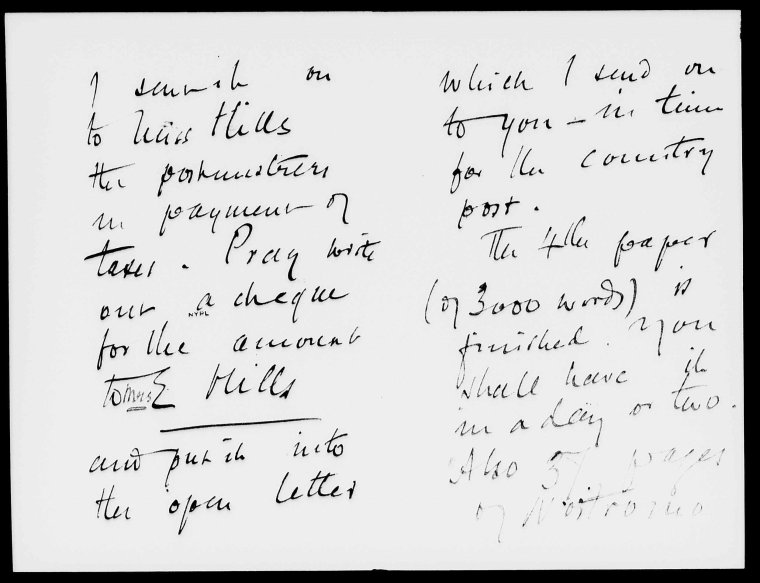 I send it on
to Miss Hills
the postmistress
in payment of
taxes. Pray write
out a cheque
NYPL
for the amount
to Miss E Hills
and put it into
the open letter
which I send on
to you – in time
for the country
post.
The 4th paper
(of 3000 words) is
finished. You
shall have it
in a day or two.
Also pages
of Nostromo